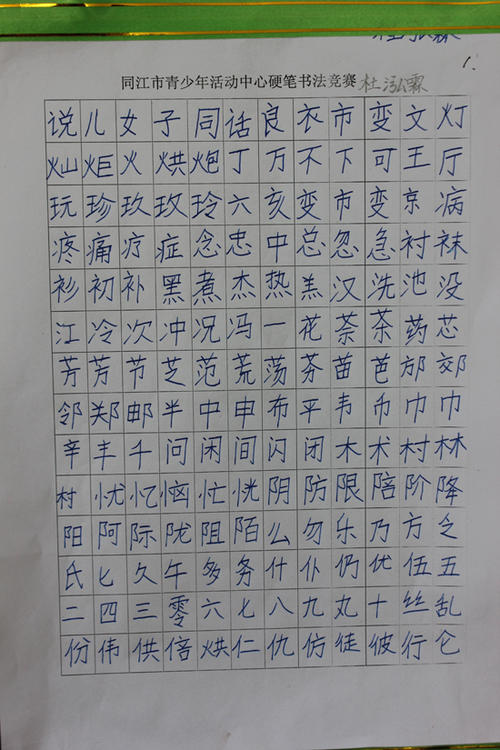 1.
同江市青少年活动中心硬笔书法竞赛 杜泓霖
说儿女子同话良衣市变文灯
灿炬火烘炮丁万不下可王厅
玩珍玫玫玲六亥变市变京病
疼痛疗症念忠中总忽急衬袜
衫初补黑煮杰热羔汉洗池没
江冷次冲况冯一花荼茶药芯
芳芳节芝范荒荡芬苗芭邡郊
邻郑邮半中申布平韦币巾巾
辛丰千问闲间闪闭木术村林
村忧忆恼忙恍阴防限陪阶降
阳阿际陇阻陌么勿乐乃方乏
氏匕久午多务什仆仍优伍五
二四三零六七八九丸十丝乱
份伟供倍烘仁仇仿徒彼行仑